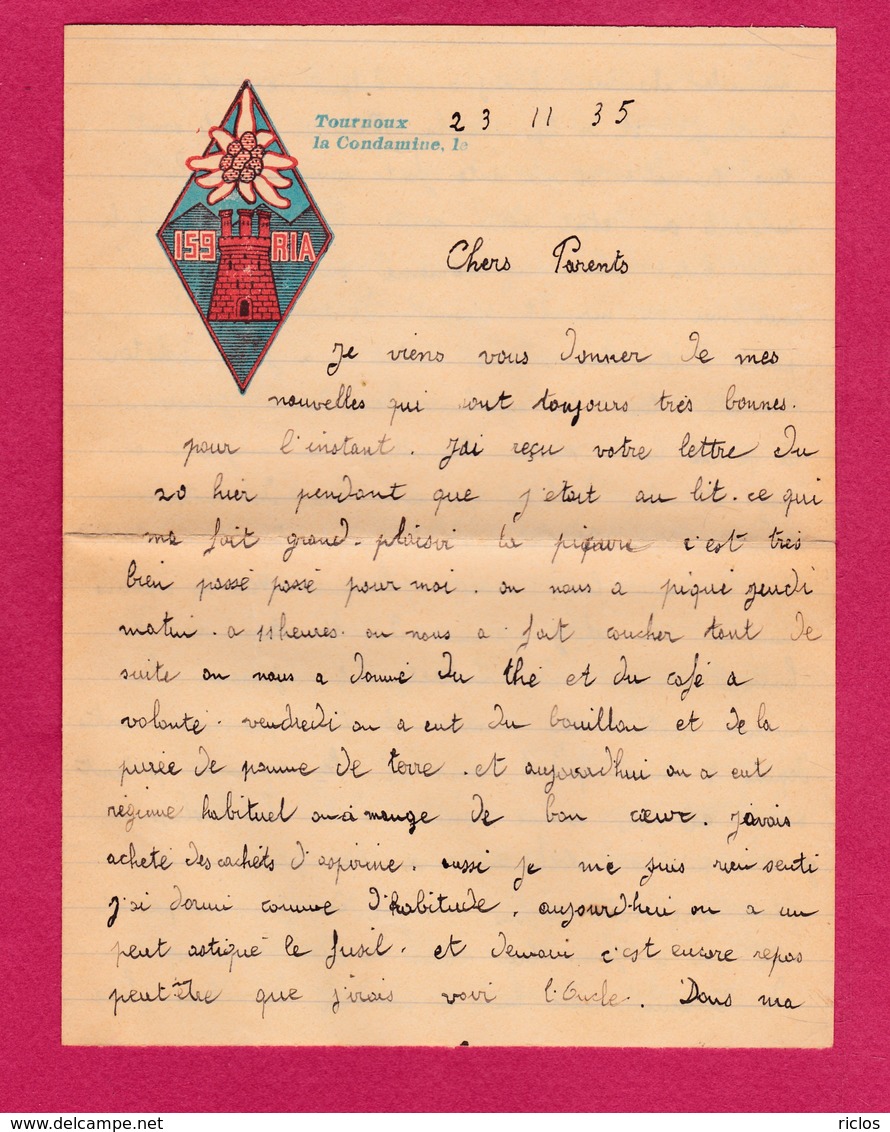 Tournoux
la Condamine, le 23 11 35
159 RIA
Chers Parents
Je viens vous donner de mes
nouvelles qui sont toujours très bonnes.
pour l'instant. J'ai reçu votre lettre du
20 hier pendant que j'etait au lit. ce qui
ma fait grand. plaisir la piqure c'est très
bien passé passé pour moi. on nous a piqué jeudi
matin. a 11 heures. on nous a fait coucher tout de
suite on nous a donné du thé et du café a
volonté. vendredi on a eut du bouillon et de la
purée de pomme de terre. et aujourdhui on a eut
régime habituel on a mangé de bon cœur. J'avais
acheté des cachets d'aspirine. aussi je me suis rien senti
j'ai dormi comme d'habitude. aujourd'hui on a un
peut astiqué le fusil. et demain c'est encore repos
peut-être que j'irais voir l'Oncle. Dans ma
delcampe.net
riclos